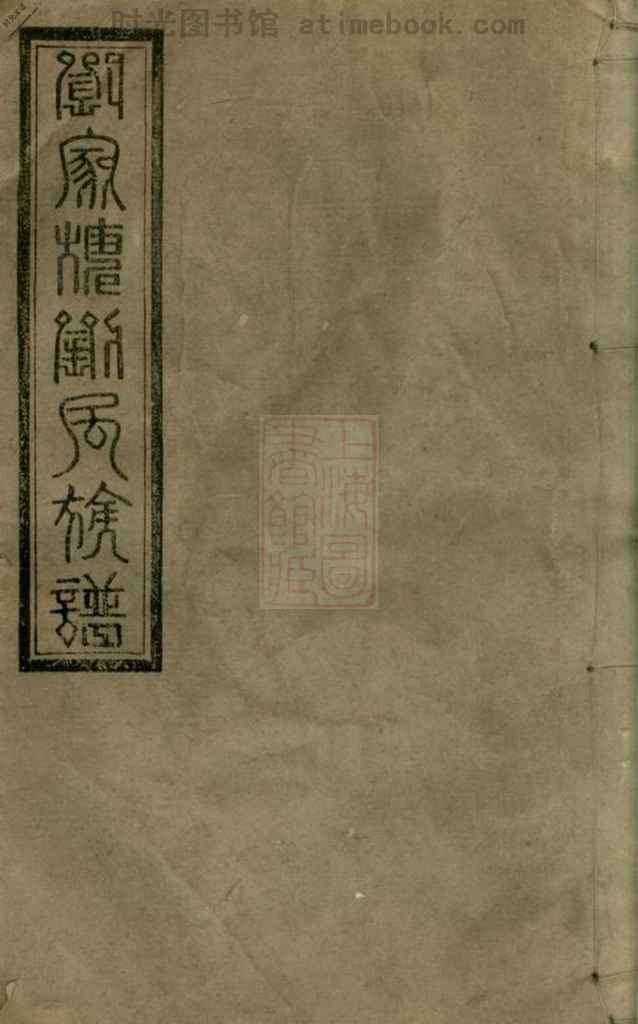 时光图书馆 atimebook.com
家劉氏族譜
上海圖
書館藏